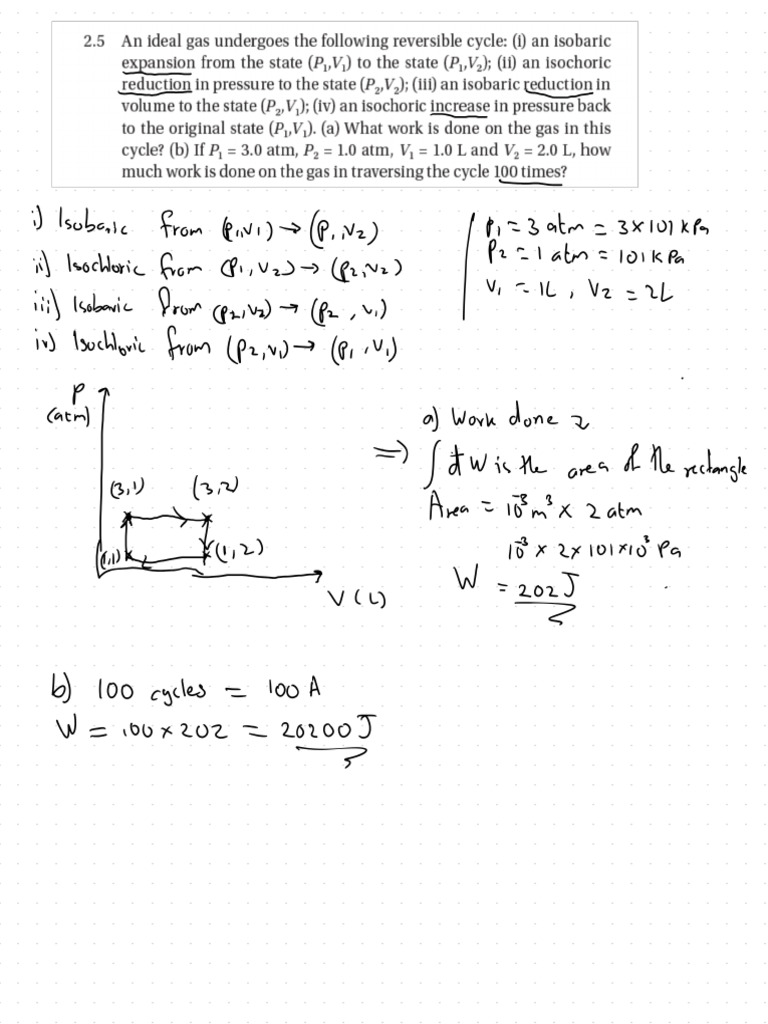 2.5 An ideal gas undergoes the following reversible cycle: (i) an isobaric
expansion from the state (P₁,V₁) to the state (P₁,V₂); (ii) an isochoric
reduction in pressure to the state (P₂,V₂); (iii) an isobaric reduction in
volume to the state (P₂,V₁); (iv) an isochoric increase in pressure back
to the original state (P₁,V₁). (a) What work is done on the gas in this
cycle? (b) If P₁ = 3.0 atm, P₂ = 1.0 atm, V₁ = 1.0 L and V₂ = 2.0 L, how
much work is done on the gas in traversing the cycle 100 times?
i) Isobaric from (P₁,V₁) → (P₁,V₂)
ii) Isochloric from (P₁,V₂) → (P₂,V₂)
iii) Isobaric from (P₂,V₂) → (P₂,V₁)
iv) Isochloric from (P₂,V₁) → (P₁,V₁)
P₁ = 3 atm = 3×101 kPa
P₂ = 1 atm = 101 kPa
V₁ = 1L, V₂ = 2L
P
(atm)
(3,1) (3,2)
(1,1) (1,2)
V (L)
a) Work done
⇒ ∫đW is the area of the rectangle
Area = 10⁻³m³ × 2 atm
10⁻³ × 2×101×10³ Pa
W = 202 J
b) 100 cycles = 100 A
W = 100×202 = 20200 J